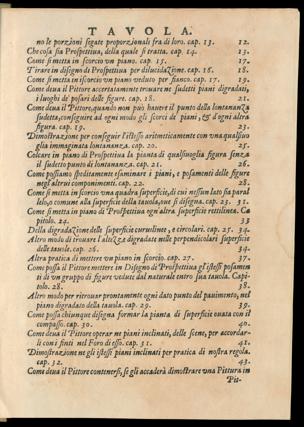 TAVOLA.
no le porzioni segate proporzionali fra di loro. cap. 13. 12.
Che cosa sia Prospettiua, della quale si tratta. cap. 14. 13.
Come si metta in iscorcio vn piano. cap. 15. 17.
Tirare in disegno di Prospettiua per dilucidazione. cap. 16. 18.
Come si metta in iscorcio vn piano veduto per fianco. cap. 17. 19.
Come deua il Pittore accertatamente trouare ne sudetti piani digradati,
i luoghi de' posari delle figure. cap. 18. 21.
Come deua il Pittore, quando non può hauere il punto della lontananza
sudetta, conseguire ad ogni modo gli scorci de' piani, & d'ogni altra
figura. cap. 19. 23.
Dimostrazione per conseguir l'istesso aritmeticamente con vna qualsiuo
glia immaginata lontananza. cap. 20. 25.
Colcare in piano di Prospettiua la pianta di qualsiuoglia figura senza
il sudetto punto di lontananza. cap. 21. 26.
Come possiamo speditamente esaminare i piani, e posamenti delle figure
negl'altrui componimenti. cap. 22. 28.
Come si metta in scorcio vna quadra superficie, di cui nessun lato sia paral
lelo, o comune alla superficie della tauola, oue si disegna. cap. 23. 31.
Come si metta in piano di Prospettiua ogni altra superficie rettilinea. Ca
pitolo. 24. 33
Della digradazione delle superficie curuilinee, e circolari. cap. 25. 34.
Altro modo di trouare l'altezze digradate nelle perpendicolari superficie
delle tauole. cap. 26. 36.
Altra pratica di mettere vn piano in scorcio. cap. 27. 37.
Come possa il Pittore mettere in Disegno di Prospettiua gl'istessi posamen
ti di vn gruppo di figure vedute dal naturale entro sua tauola. Capi-
tolo. 28. 38.
Altro modo per ritrouar prontamente ogni dato punto del pauimento, nel
piano degradato della tauola. cap. 29. 39.
Come possa chiunque disegna formar la pianta di superficie ouata con il
compasso. cap. 30. 40.
Come deua il Pittore operar ne piani inclinati, delle scene, per accordar-
li con i finti nel Foro di esso. cap. 31. 41.
Dimostrazione ne gli istessi piani inclinati per pratica di nostra regola.
cap. 32. 43.
Come deua il Pittore contenersi, se gli accaderà dimostrare vna Pittura in
Pit-